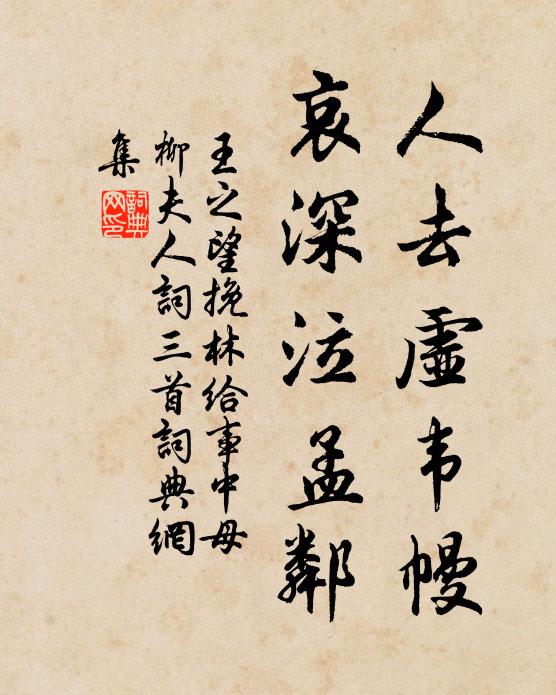 人去虛韦幔
哀深泣孟鄰
王之望挽林给事中母
柳夫人詞三首詞典網
集
詞典
网印